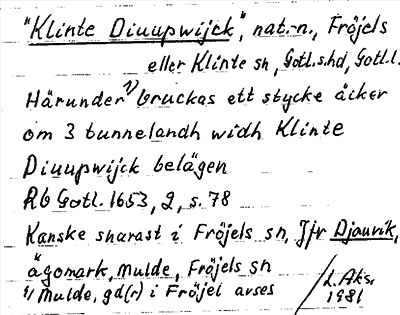 "Klinte Diuupwijck", nat.-n., Fröjels
eller Klinte sn, Gotl.s.hd, Gotl.l.
Härunder 1) bruckas ett stycke åcker
om 3 tunnelandh widh Klinte
Diuupwijck belägen
Rb Gotl. 1653, 2, s. 78
Kanske snarast i Fröjels sn, Jfr Djauvik,
ägomark, Mulde, Fröjels sn
1) Mulde, gd(r) i Fröjel avses
L. Aks.
1981